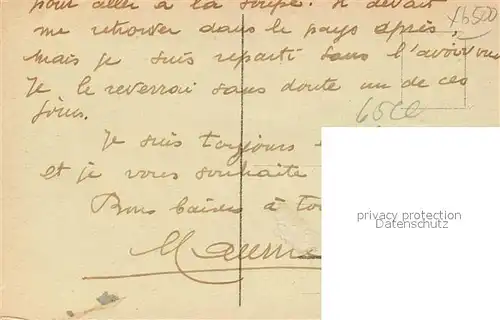 pour aller à la soupe. Il devait
me retrouver dans le pays après,
mais je suis reparti sans l'avoir vu
Je le reverrai sans doute un de ces
jours.
Je suis toujours
et je vous souhaite
Bons baisers à
privacy protection
copyright